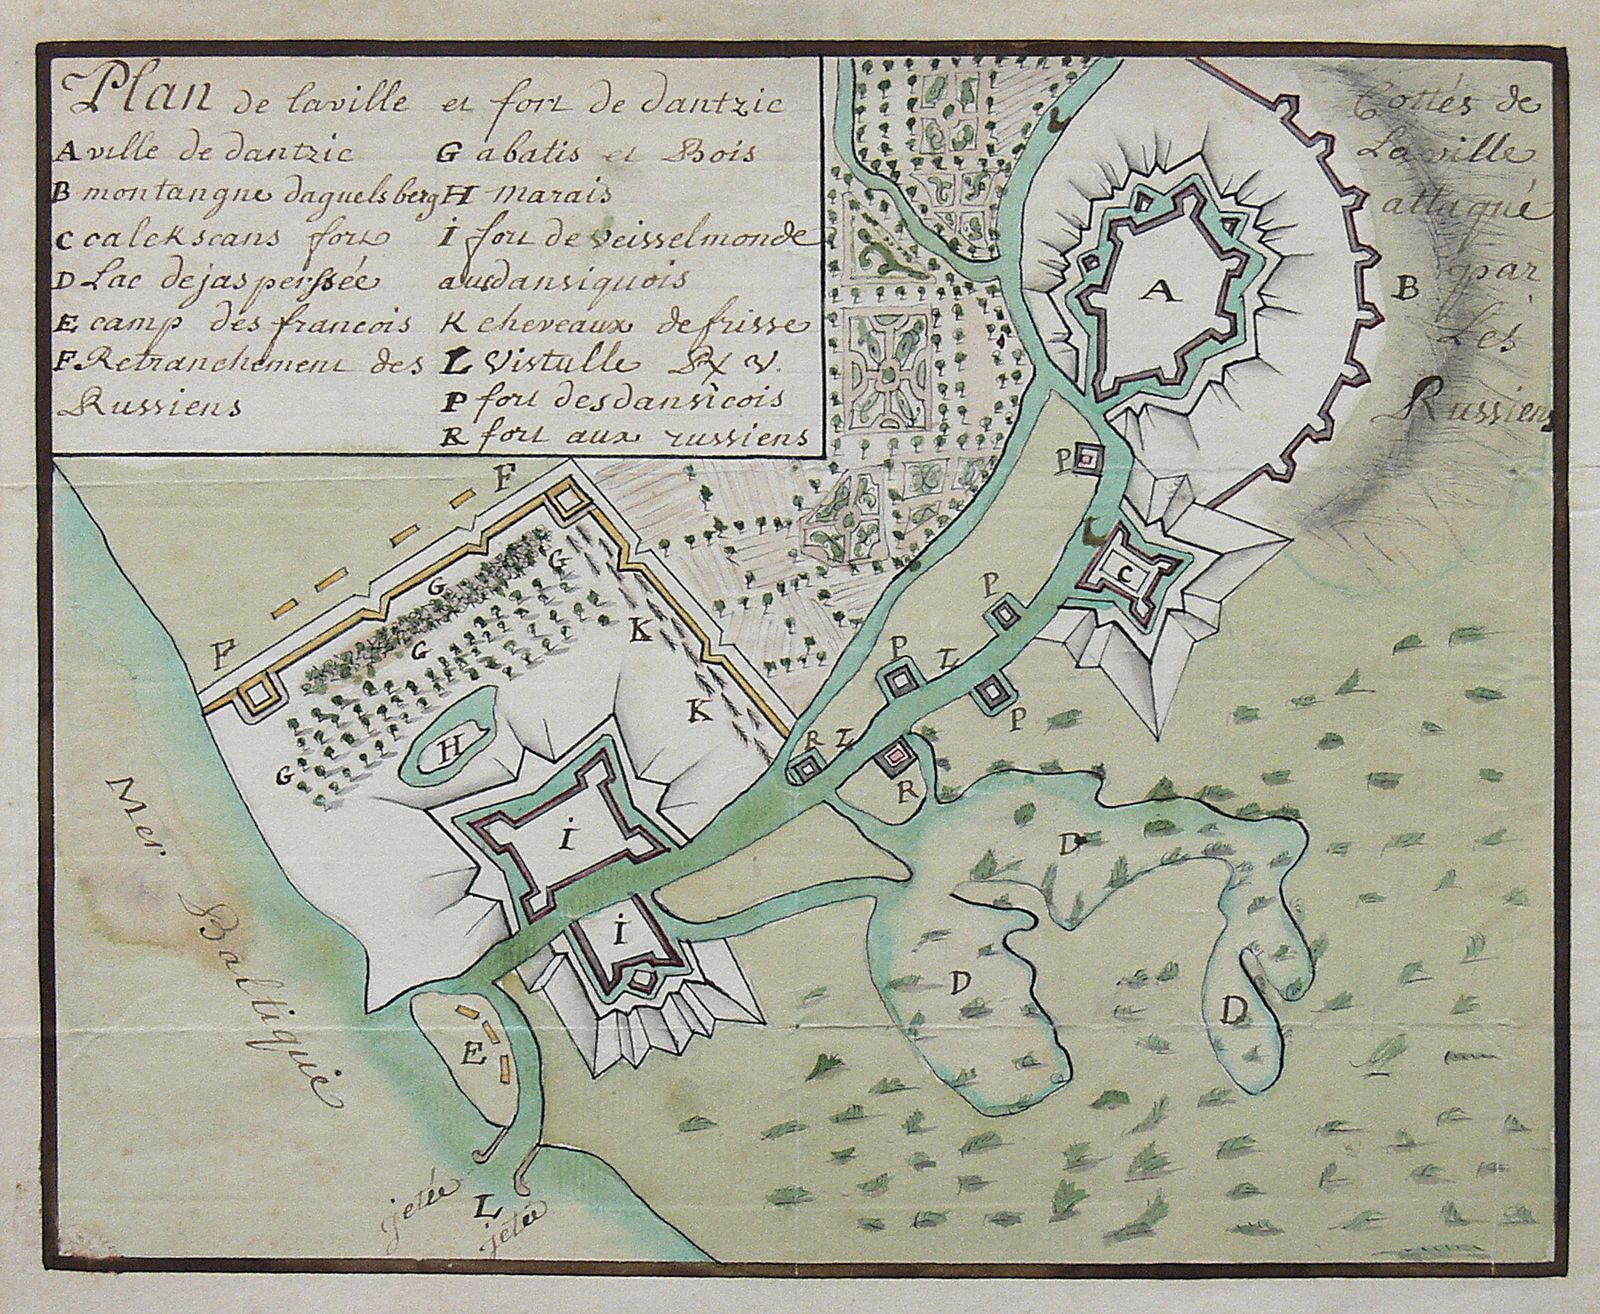 Plan de laville et fort de dantzic
A ville de dantzic
B montangne daguelsberg
C calckscans fort
D Lac dejasperssée
E camp des francois
F Retranchement des
Russiens
G abatis et Bois
H marais
i fort de veisselmonde
aux dansiquois
K cheveaux defrisse
L Vistulle P. V.
P fort desdansicois
R fort aux russiens
Cottés de
Laville
attaqué
par
Les
Russiens
A
B
P
C
P
P
L
P
R
L
R
F
F
G
G
G
G
K
K
H
i
i
D
D
D
E
Mer Baltique
jetée
L
jetée